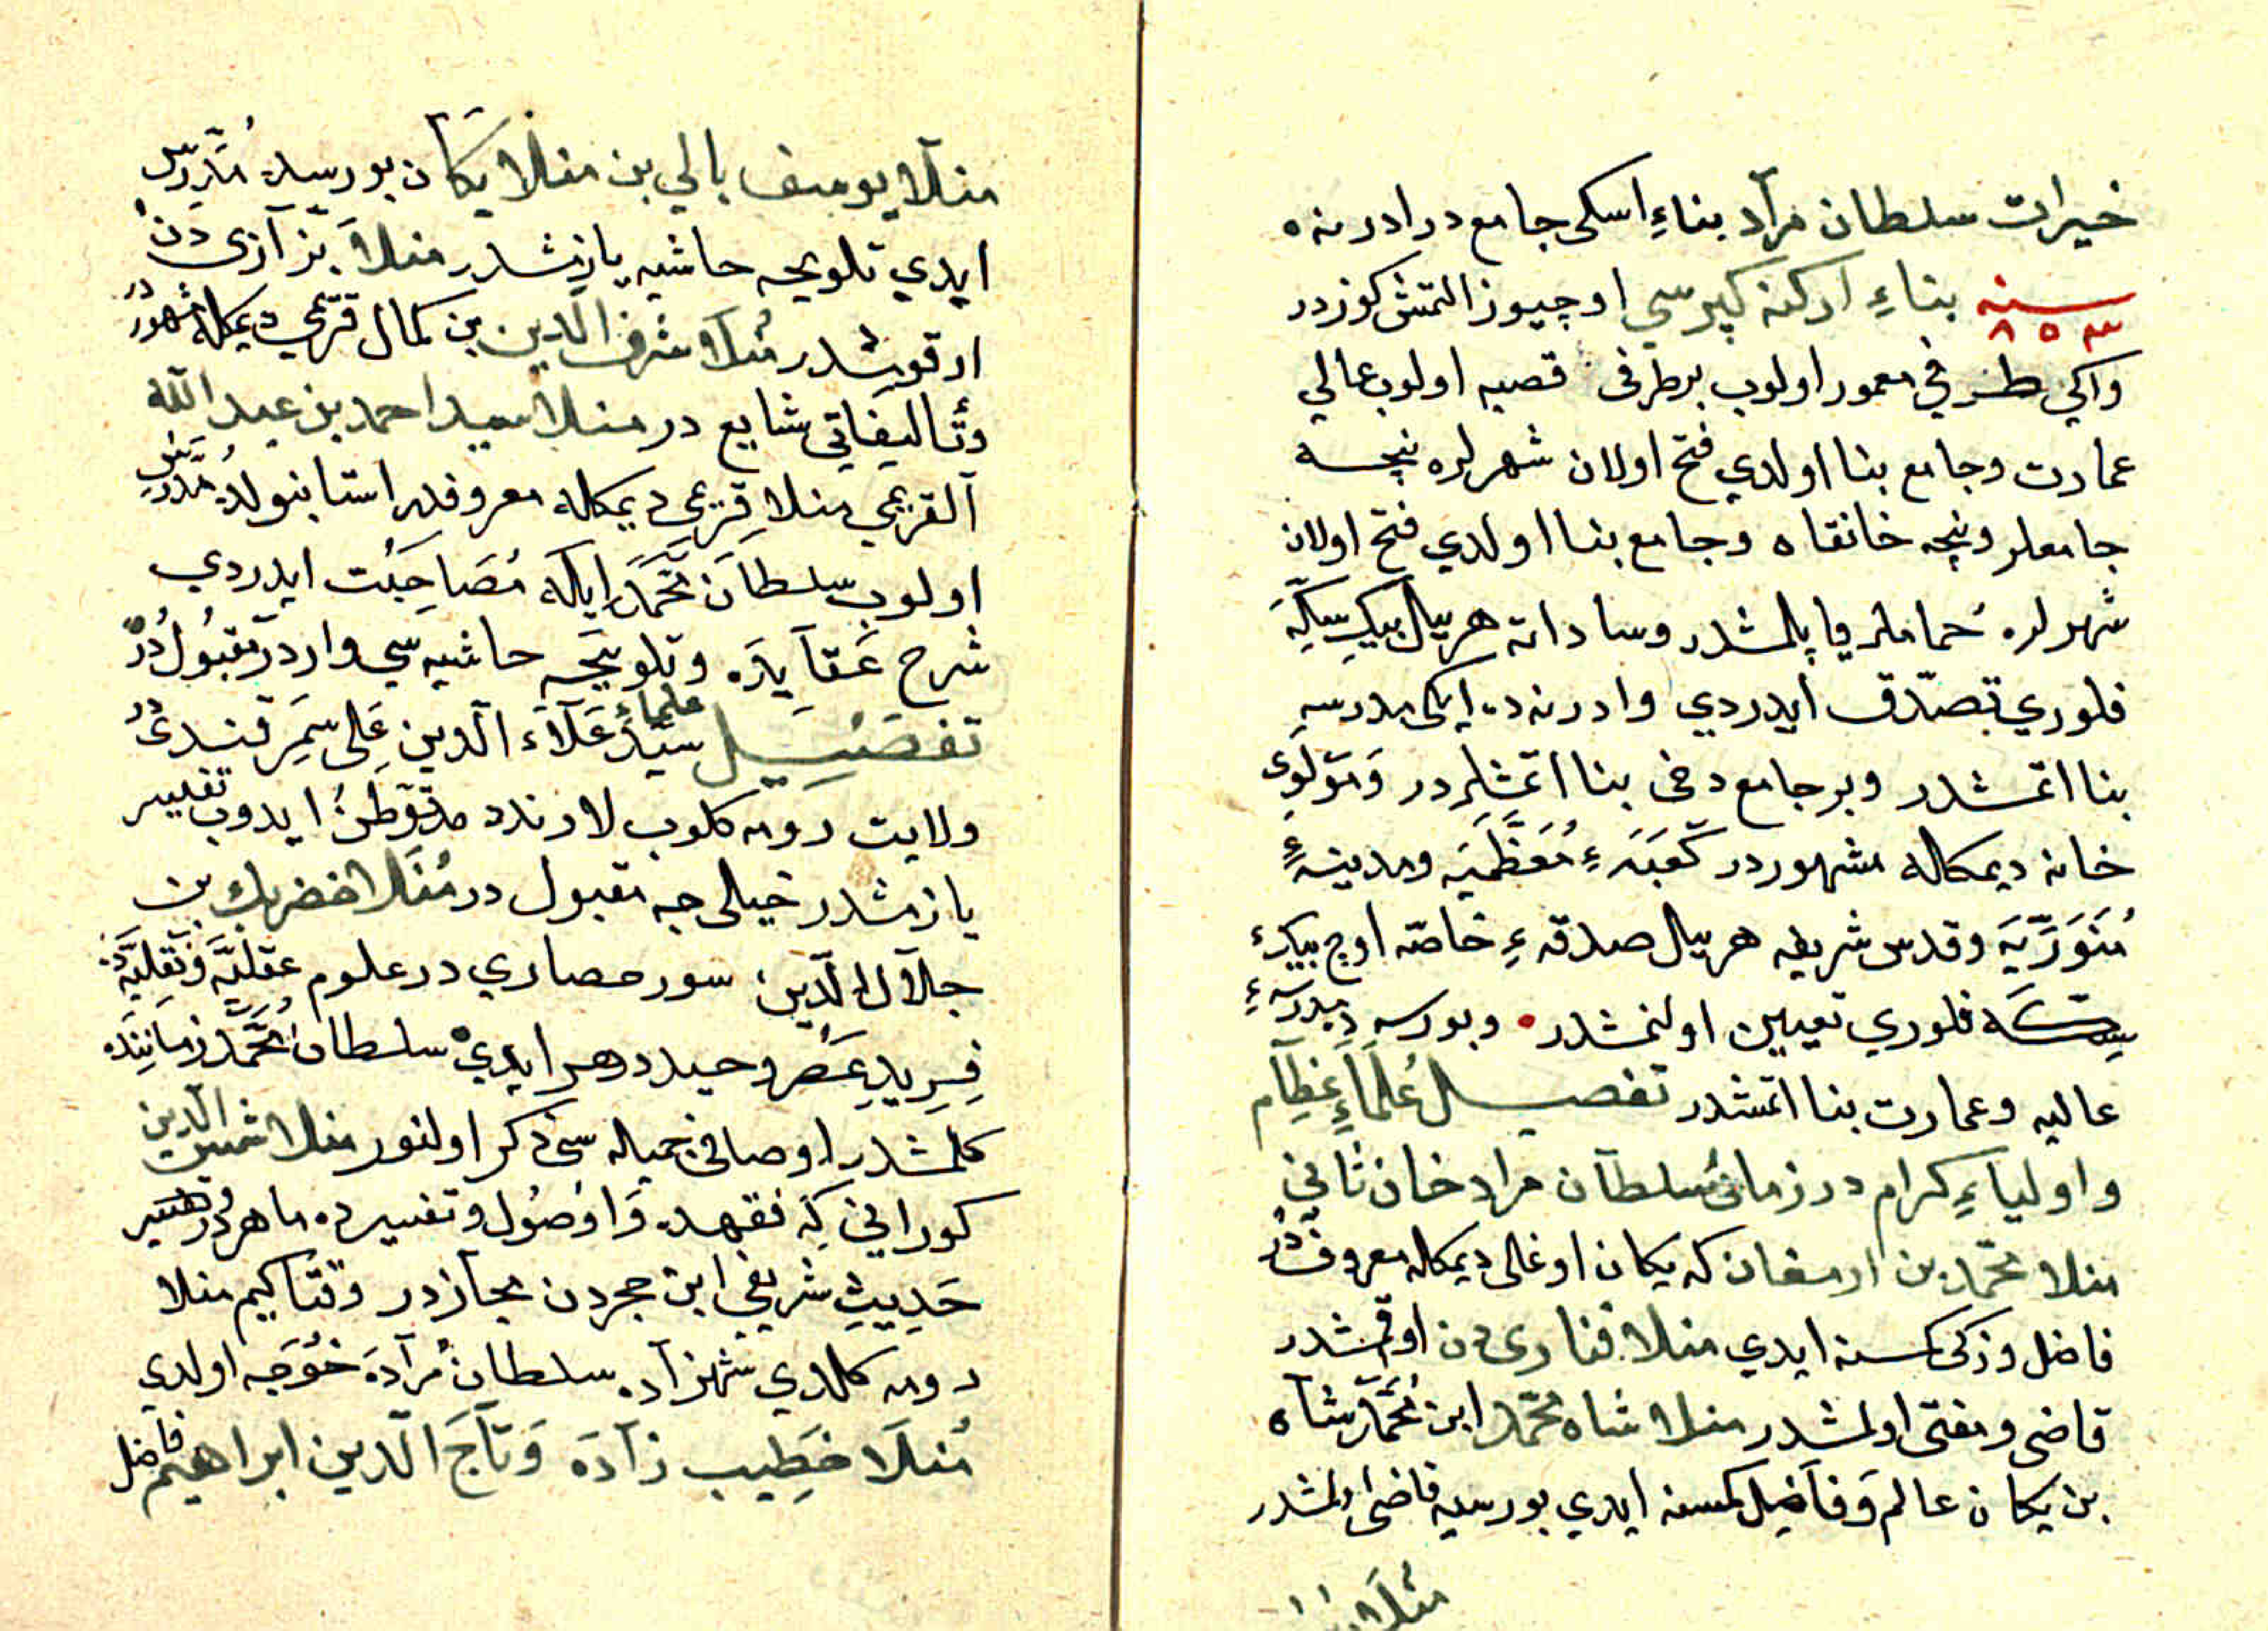 خيرات سلطان مرآد بناءِ اسكى جامع در ادرنه ه
سنه ٨٥٣ بناءِ اركنه كپرسي اوچيوز التمش كوزدر
واكي طرفي معمور اولوب برطرفى قصبه اولوب عالي
عمارت وجامع بنا اولدي فتح اولان شهرلره نيجه
جامعلر ونيجه خانقاه وجامع بنا اولدي فتح اولان
شهرلره حماملر ياپلمشدر وساداته هر ييل بيك سكه
فلوري تصدّق ايدردي وادرنه ده ايكى مدرسه
بنا اتمشدر وبر جامع دخى بنا اتمشلردر ومولوى
خانه ديمكله مشهوردر كعبهءِ معظّميه ومدينهءِ
منوّريه وقدس شريفه هر ييل صدقهءِ خاصّه اوچ بيك
سكّه فلوري تعيين اولنمشدر وبورسه ده مدرسهءِ
عاليه وعمارت بنا اتمشدر تفصيل عُلماءِ عظآم
و اولياءِ كرام در زمان سُلطآن مراد خان ثاني
منلا محمّد بن ارمغان كه يكان اوغلى ديمكله معروفدر
فاضل وزكى كسنه ايدي منلا فنارى دن اوقمشدر
قاضى ومفتى اولمشدر منلا شاه محمّد ابن محمّد شاه
بن يكان عالم وفاضل كمسنه ايدي بورسيه قاضى اولمشدر
منلا
منلا يوسف بالي بن منلا يكان بورسده مدرّس
ايدي تلويحه حاشيه يازمشدر منلا بزآزى دن
اوقومشدر منلا شرف الدين بن كمال قريمي ديمكله مشهوردر
وتأليفاتي شايع در منلا سيد احمد بن عبد الله
القريمي منلا قريمي ديمكله معروفدر استانبولده مدرّس
اولوب سلطان محمّد ايله مصاحبت ايدردي
شرح عقآيده وتلويحه حاشيه سي واردر مقبول در
تفصيل علماء سيّد علاء الدين على سمرقندى در
ولايت رومه كلوب لارندد متوطن ايدوب تفسير
يازمشدر خيلى جه مقبول در منلا خضر بك بن
جلال الدّين سورحصاري در علوم عقليّه ونقليّه ده
فريد عصر وحيد دهر ايدي سلطان محمّد زماننده
كلمشدر اوصاف جميله سى ذكر اولنور منلا شمس الدين
كوراني كه فقهده واوصُول وتفسيرده ماهر در هم
حديث شريفي ابن حجردن مجازدر وقتاكيم منلا
رومه كلدي شهزآده سلطان مرآده خوجه اولدي
منلا خطيب زآده وتاج الدين ابراهيم فاضل